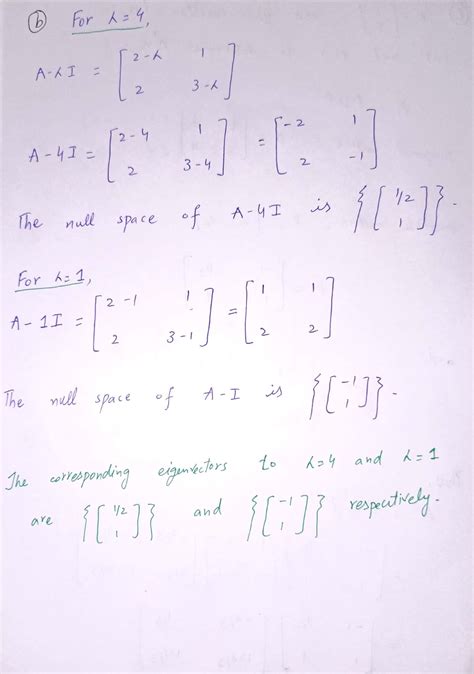 (b) For λ=4,
A-λI = [2-λ 1
2 3-λ]
A-4I = [2-4 1
2 3-4] = [-2 1
2 -1]
The null space of A-4I is {[1/2
1]}.
For λ=1,
A-1I = [2-1 1
2 3-1] = [1 1
2 2]
The null space of A-I is {[-1
1]}.
The corresponding eigenvectors to λ=4 and λ=1
are {[1/2
1]} and {[-1
1]} respecitively.